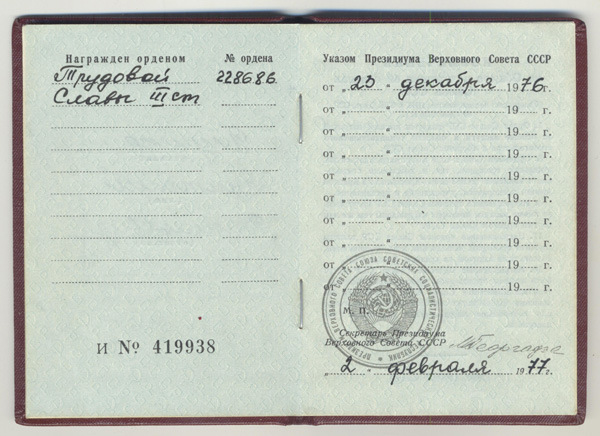 Награжден орденом
№ ордена
Трудовой
228686
Славы III ст
И № 419938
Указом Президиума Верховного Совета СССР
от „ 23 “ декабря 1976 г.
от „ “ 19 г.
от „ “ 19 г.
от „ “ 19 г.
от „ “ 19 г.
от „ “ 19 г.
от „ “ 19 г.
от „ “ 19 г.
от „ “ 19 г.
от „ “ 19 г.
М. П.
Секретарь Президиума
Верховного Совета СССР
МГеоргадзе
„ 2 “ февраля 1977 г.